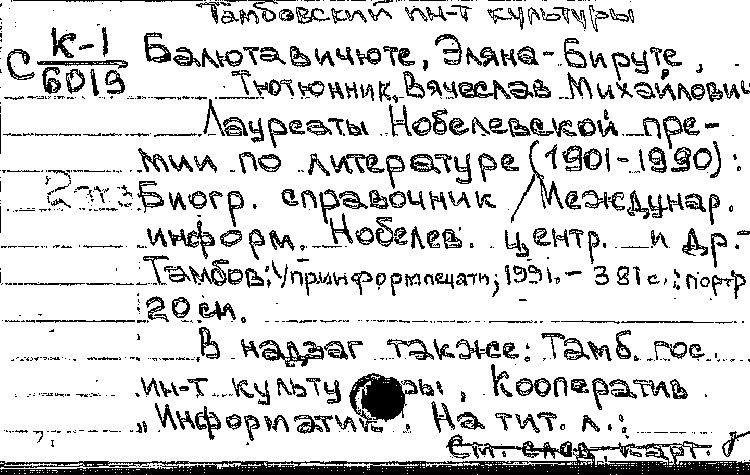 Тамбовский ин-т культуры
С К-1
6019
Балютавичюте, Эляна-Бируте,
Тютюнник, Вячеслав Михайлович
Лауреаты Нобелевской пре-
мии по литературе (1901-1990):
2 экз. Биогр. справочник / Междунар.
информ. Нобелев. центр. и др.-
Тамбов: Упринформпечати, 1991. - 381 с.: портр
20 см.
В надзаг также: Тамб. гос.
ин-т культуры, Кооператив
„Информатик". На тит. л.:
См. след. карт.